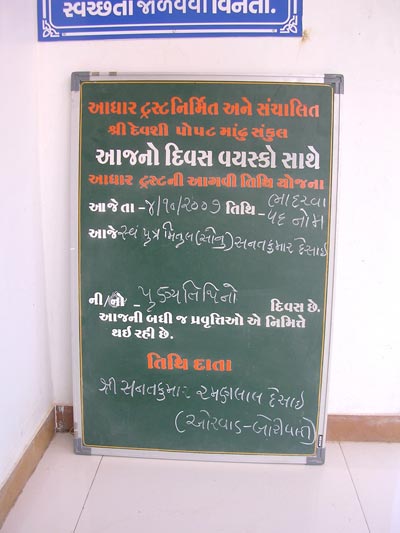 સ્વચ્છતા જાળવવા વિનંતી.
આધાર ટ્રસ્ટનિર્મિત અને સંચાલિત
શ્રી દેવશી પોપટ માંઢુ સંકુલ
આજનો દિવસ વયસ્કો સાથે
આધાર ટ્રસ્ટની આગવી તિથિ યોજના
આજે તા - ૪/૧૦/૨૦૦૭ તિથિ - ભાદરવા વદ નોમ
આજે સ્વ પુત્ર મિતુલ (સોનુ) સનતકુમાર દેસાઇ
ની/નો - પૂણ્યતિથિનો દિવસ છે.
આજની બધી જ પ્રવૃત્તિઓ એ નિમિત્તે
થઇ રહી છે.
તિથિ દાતા
શ્રી સનતકુમાર રમણલાલ દેસાઇ
(ઓરવાડ-બોરીવલી)